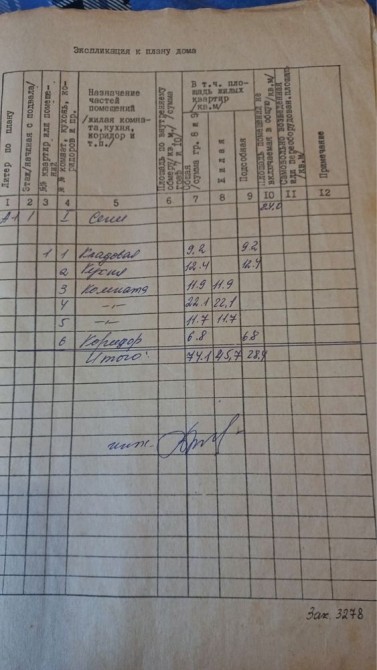 Экспликация к плану дома
Литер по плану
Этаж/начиная с подвала/
№ квартир или помеще-
ний
№ комнат, кухонь, ко-
ридоров и пр.
Назначение
частей
помещений
/жилая комна-
та,кухня,
коридор и
т.п./
Площадь по внутреннему
обмеру/кв.м./ /сумма
граф 7 и 10/
В т.ч. пло-
щадь жилых
квартир
/кв.м/
Общая
/сумма гр. 8 и 9/
Жилая
Подсобная
Площадь помещения не
включаемая в общую/кв.м/
Самовольно возведенная
или переоборудован.площадь
/кв.м/
Примечание
I 2 3 4 5 6 7 8 9 10 11 12
А1 1 I Сени
1 1 Кладовая 9.2 9.2
2 Кухня 12.4 12.4
3 Комната 11.9 11.9
4 -"- 22.1 22,1
5 -"- 11.7 11.7
6 Коридор 6.8 6.8
Итого: 74.1 45,7 28,4
Зак. 3278